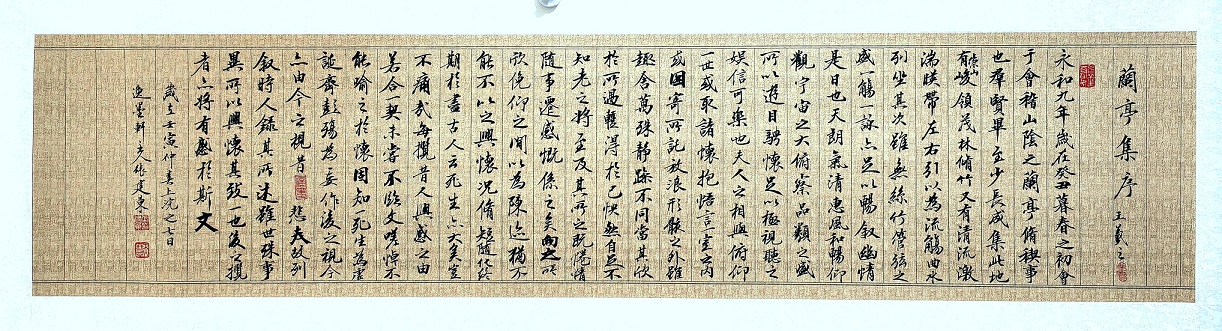 蘭亭集序 王羲之
永和九年歲在癸丑暮春之初會
于會稽山陰之蘭亭脩稧事
也羣賢畢至少長咸集此地
有崇山峻領茂林脩竹又有清流激
湍暎帶左右引以為流觴曲水
列坐其次雖無絲竹管弦之
盛一觴一詠亦足以暢叙幽情
是日也天朗氣清惠風和暢仰
觀宇宙之大俯察品類之盛
所以遊目騁懷足以極視聽之
娛信可樂也夫人之相與俯仰
一世或取諸懷抱悟言一室之內
或因寄所託放浪形骸之外雖
趣舍萬殊靜躁不同當其欣
於所遇蹔得於己快然自足不
知老之將至及其所之既惓情
隨事遷感慨係之矣向之所
欣俛仰之間以為陳迹猶不
能不以之興懷況脩短隨化終
期於盡古人云死生亦大矣豈
不痛哉每攬昔人興感之由
若合一契未嘗不臨文嗟悼不
能喻之於懷固知一死生為虛
誕齊彭殤為妄作後之視今
亦由今之視昔 悲夫故列
叙時人錄其所述雖世殊事
異所以興懷其致一也後之攬
者亦將有感於斯文
歲在壬寅仲春上浣之七日
逸墨軒主人張建東